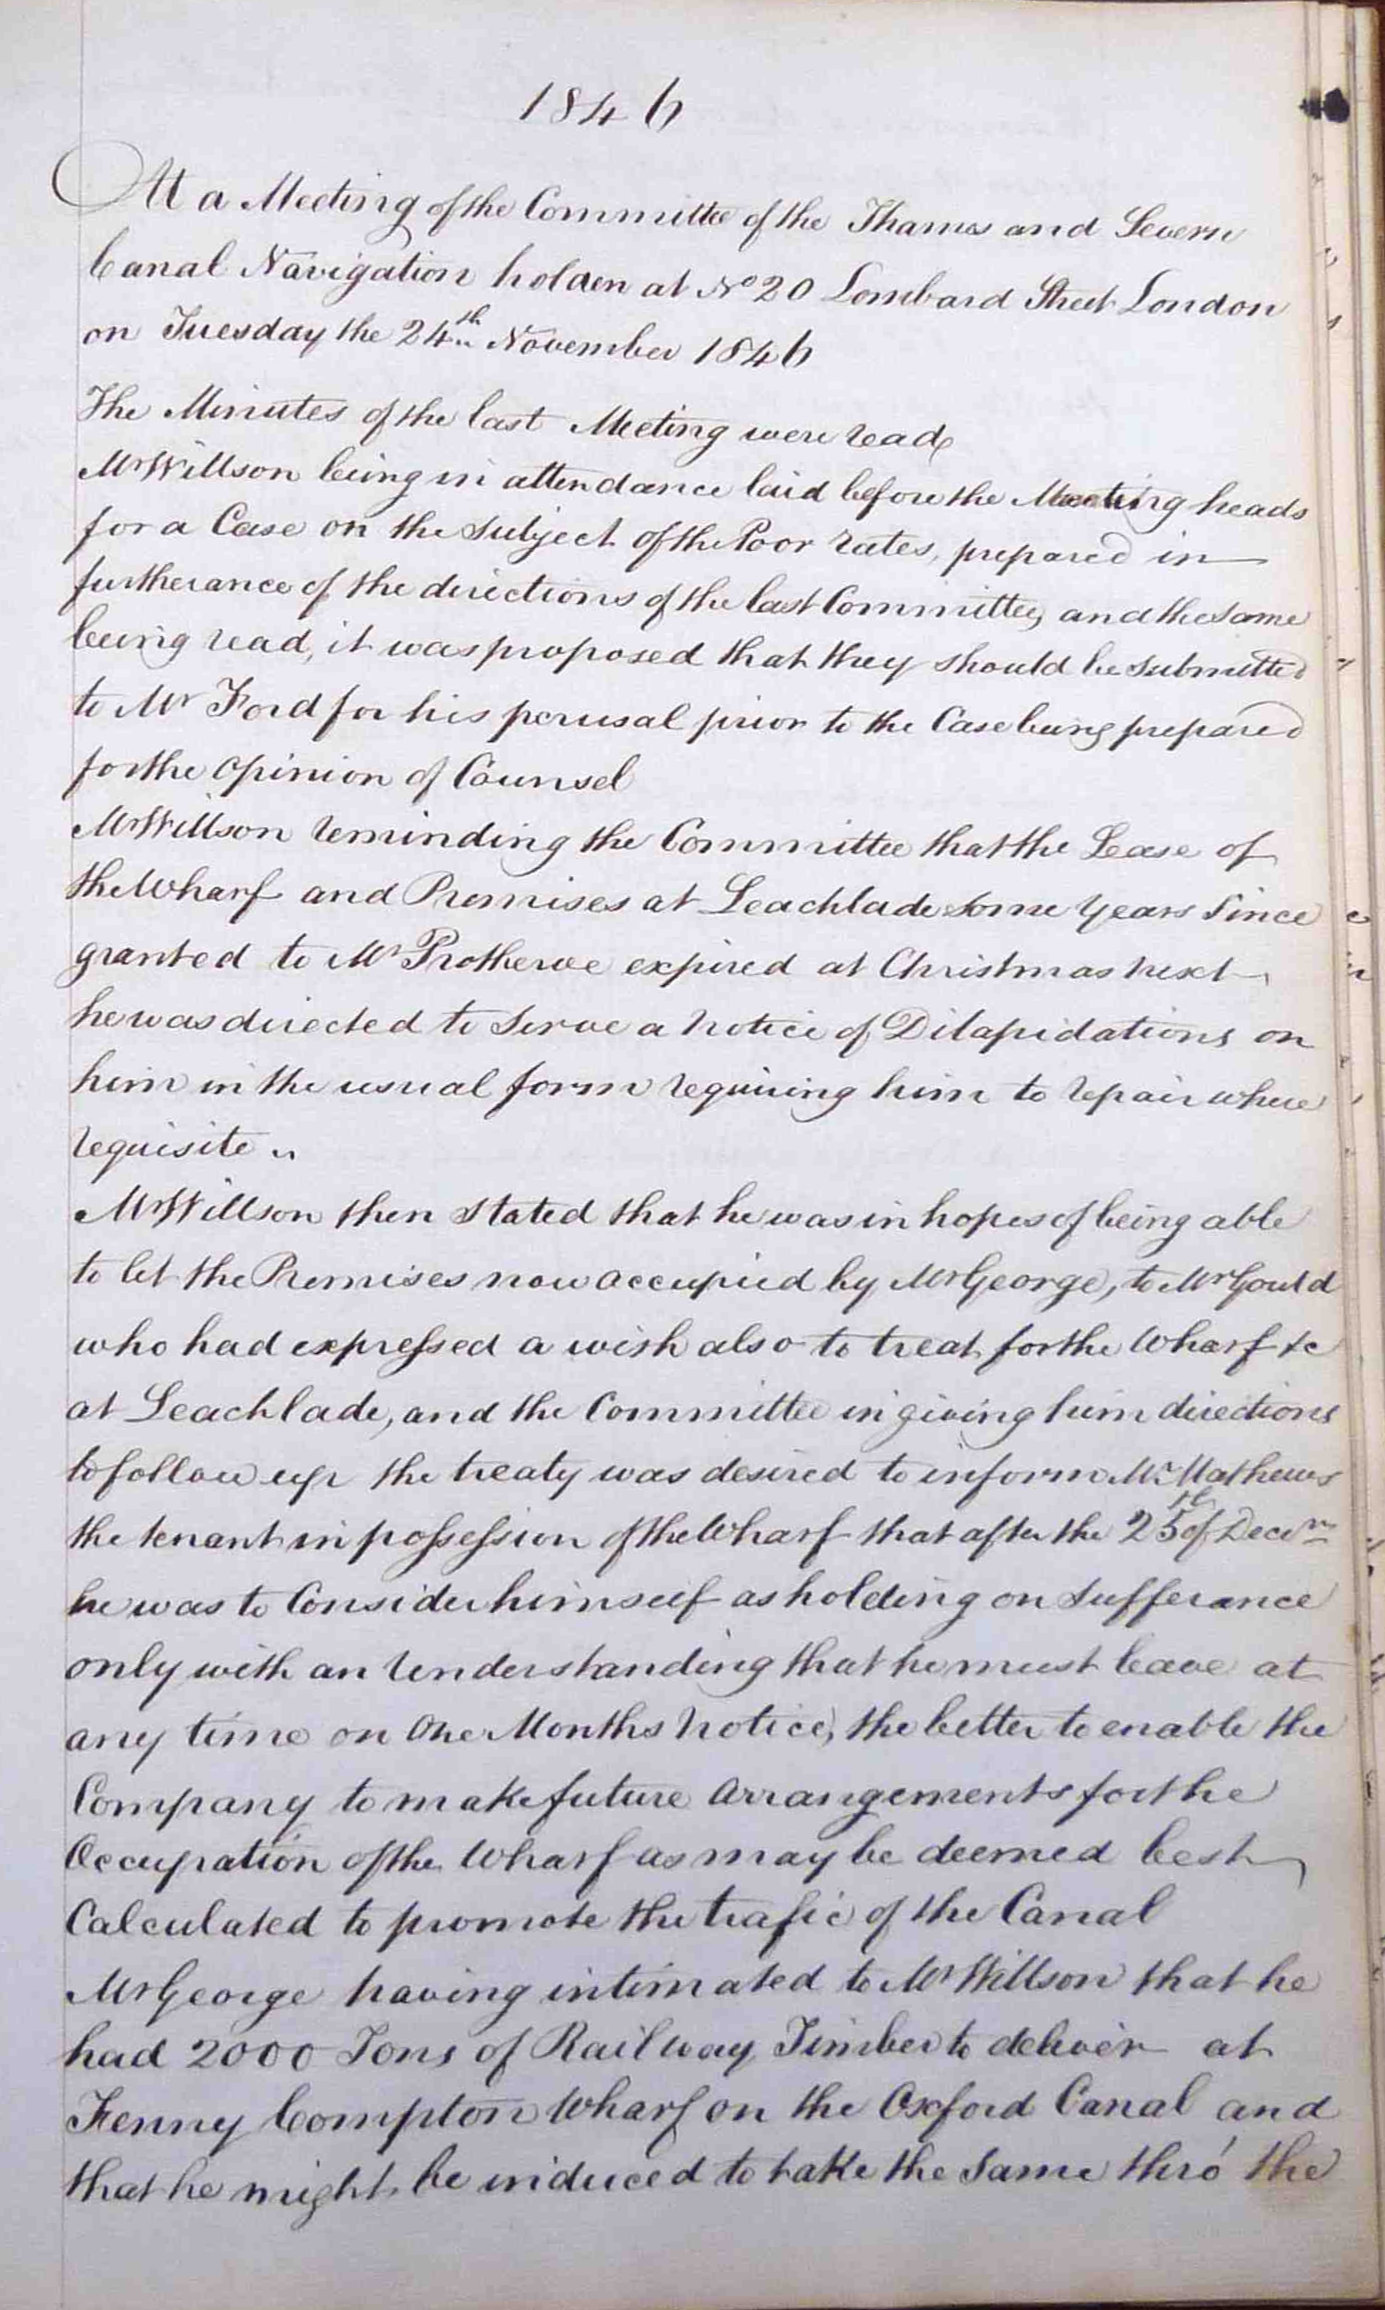 1846
At a Meeting of the Committee of the Thames and Severn
Canal Navigation holden at No 20 Lombard Street London
on Tuesday the 24th November 1846
The Minutes of the last Meeting were read
Mr Willson being in attendance laid before the Meeting heads
for a Case on the subject of the Poor rates, prepared in
furtherance of the directions of the last Committee, and the same
being read, it was proposed that they should be submitted
to Mr Ford for his perusal prior to the Case being prepared
for the opinion of Counsel
Mr Willson reminding the Committee that the Lease of
the Wharf and Premises at Leachlade some Years Since
granted to Mr Protheroe expired at Christmas next
he was directed to serve a notice of Dilapidations on
him in the usual form requiring him to repair where
requisite
Mr Willson then stated that he was in hopes of being able
to let the Premises now occupied by Mr George, to Mr Gould
who had expressed a wish also to treat for the Wharf &c
at Leachlade, and the Committee in giving him directions
to follow up the treaty was desired to inform Mr Mathews
the tenant in possession of the Wharf that after the 25th of Decem
he was to Consider himself as holding on Sufferance
only with an Understanding that he must leave at
any time on One Months notice, the better to enable the
Company to make future Arrangements for the
Occupation of the Wharf as may be deemed best
Calculated to promote the trafic of the Canal
Mr George having intimated to Mr Willson that he
had 2000 Tons of Railway Timber to deliver at
Fenny Compton Wharf on the Oxford Canal and
that he might be induced to take the Same thro' the